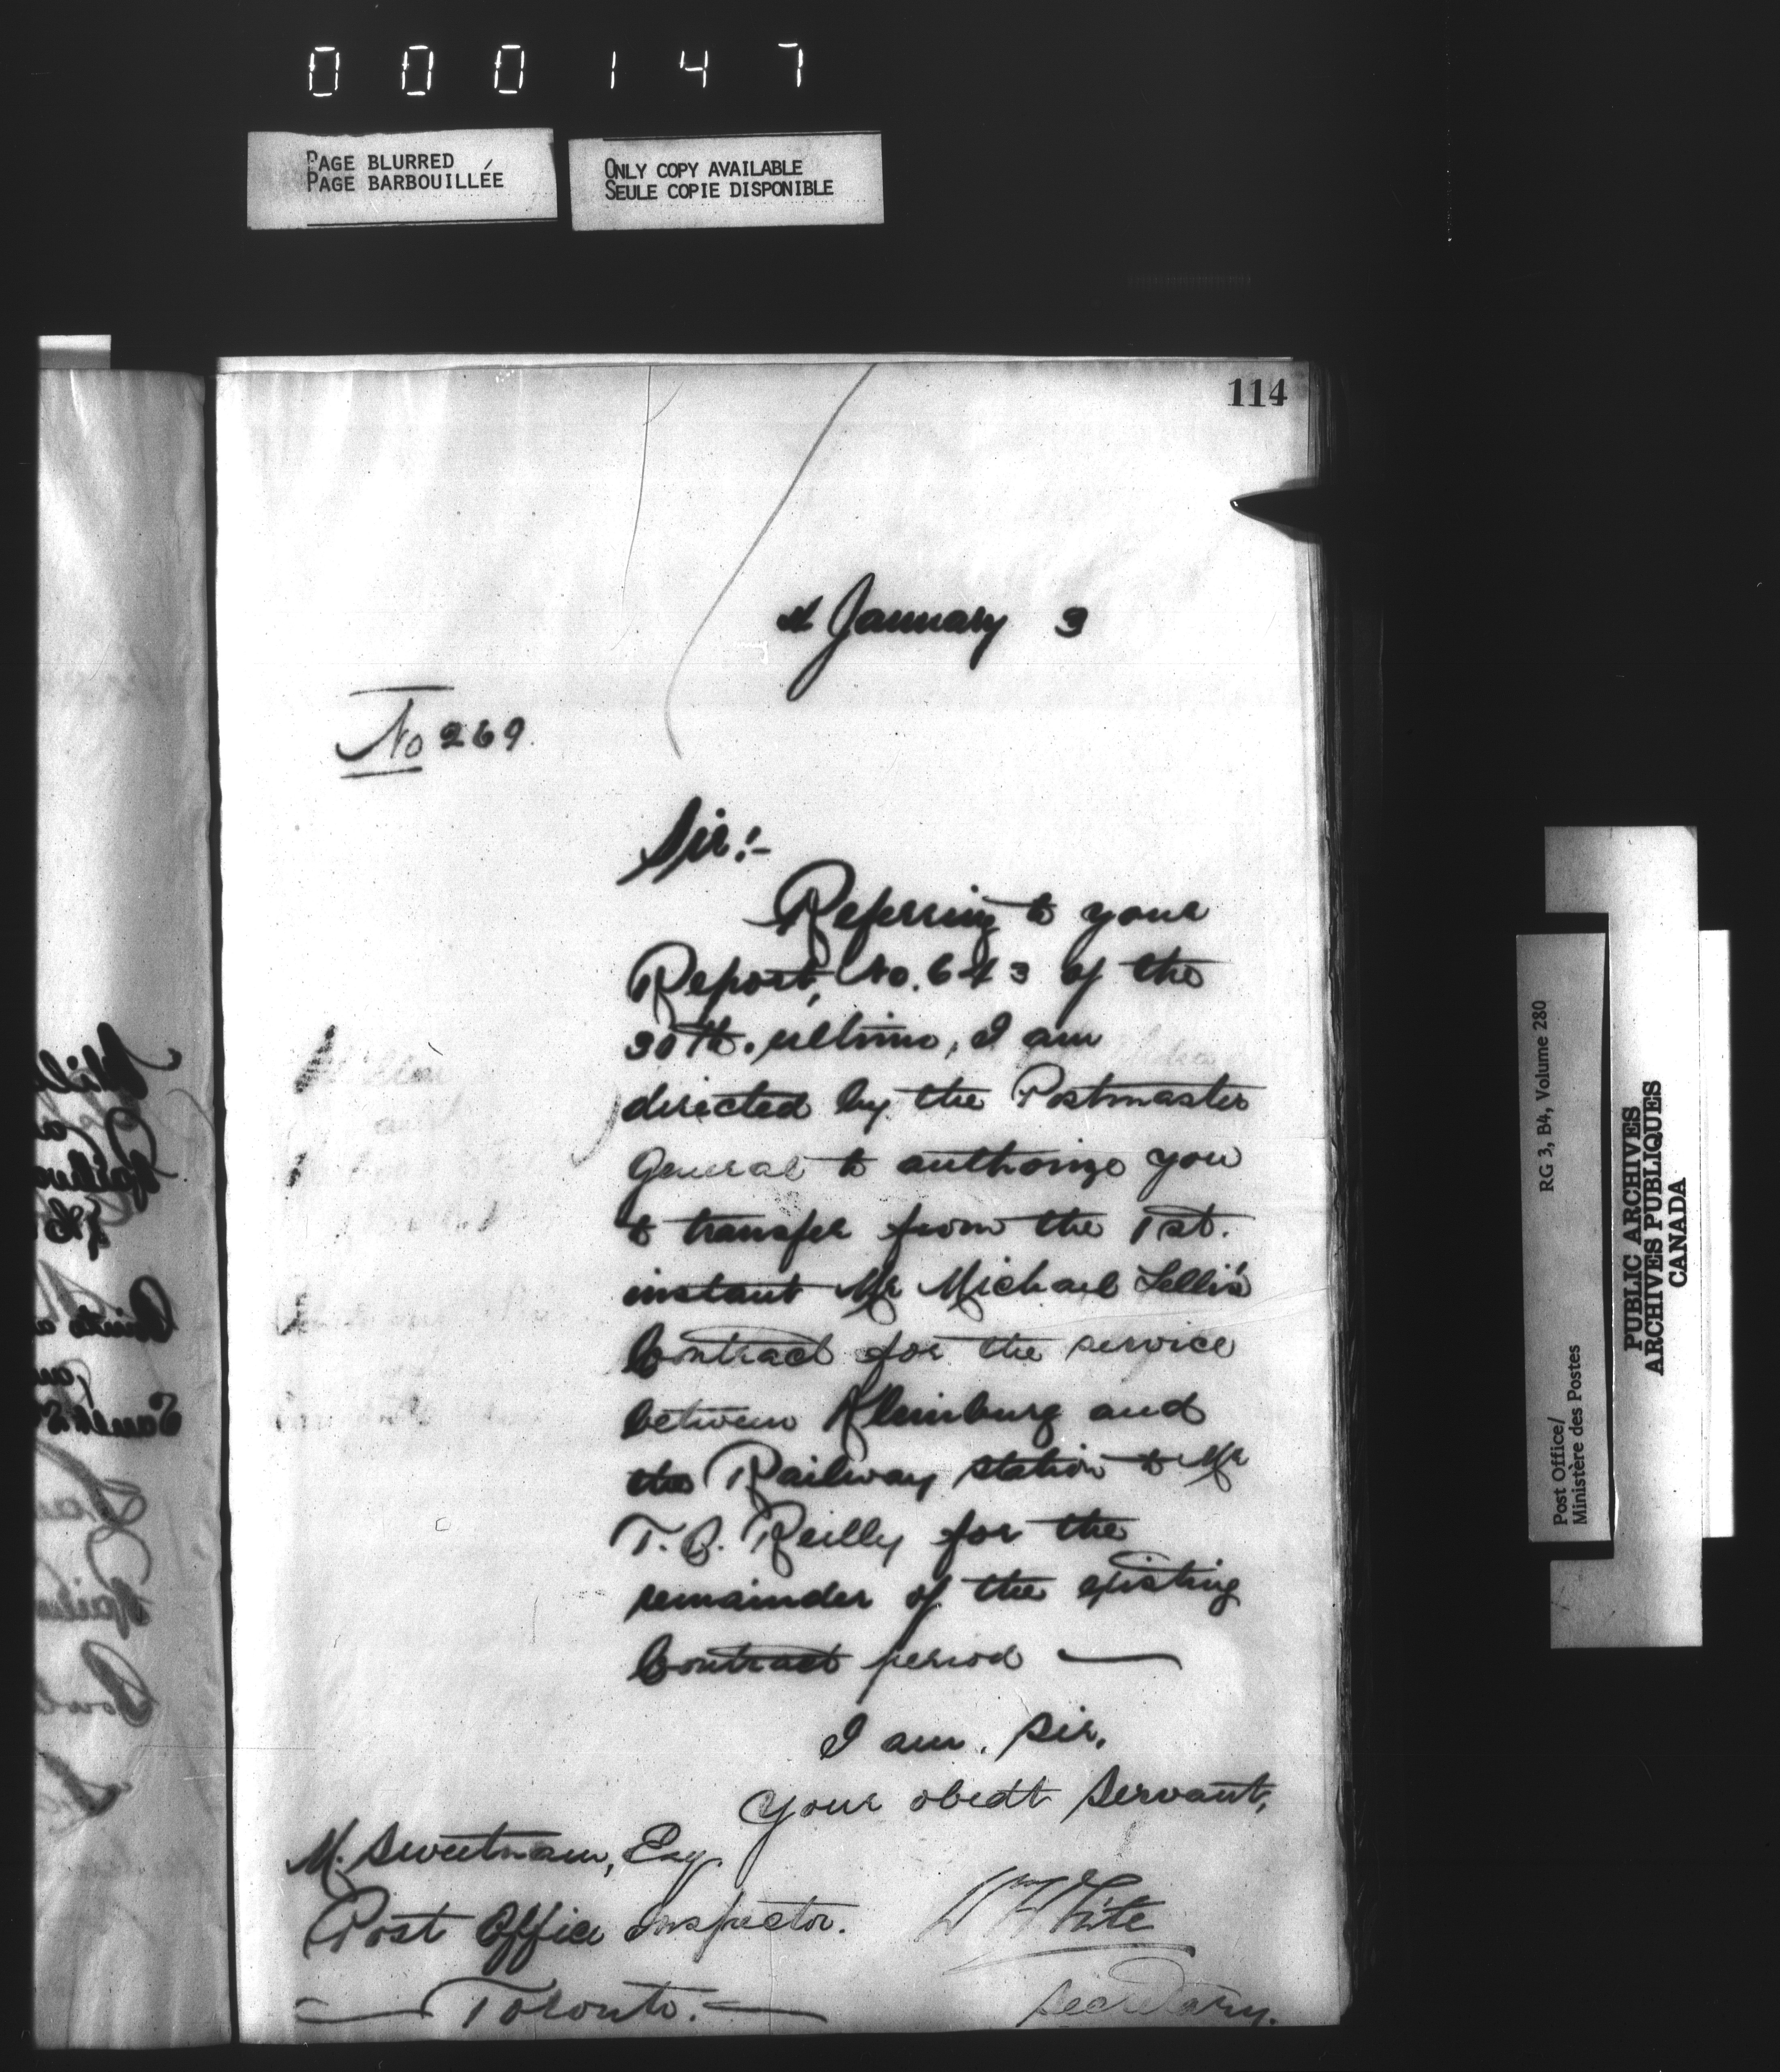 000147
PAGE BLURRED
PAGE BARBOUILLÉE
ONLY COPY AVAILABLE
SEULE COPIE DISPONIBLE
114
4 January 3
No 269.
Sir:-
Referring to your
Report, No. 643 of the
30th. ultimo, I am
directed by the Postmaster
General to authorize you
to transfer from the 1st.
instant Mr Michael Lellis
Contract for the service
between Kleinburg and
the Railway station to Mr
T. Reilly for the
remainder of the existing
Contract period —
I am, Sir,
Your obedt Servant,
M. Sweetnam, Esq.
Post Office Inspector.
Toronto.
Wm White
Secretary.
Post Office/
Ministère des Postes
RG 3, B4, Volume 280
PUBLIC ARCHIVES
ARCHIVES PUBLIQUES
CANADA